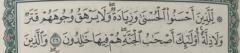 لِّلَّذِينَ أَحْسَنُوا۟ ٱلْحُسْنَىٰ وَزِيَادَةٌ وَلَا يَرْهَقُ وُجُوهَهُمْ قَتَرٌ
وَلَا ذِلَّةٌ أُو۟لَٰٓئِكَ أَصْحَٰبُ ٱلْجَنَّةِ هُمْ فِيهَا خَٰلِدُونَ وَٱلَّذِينَ